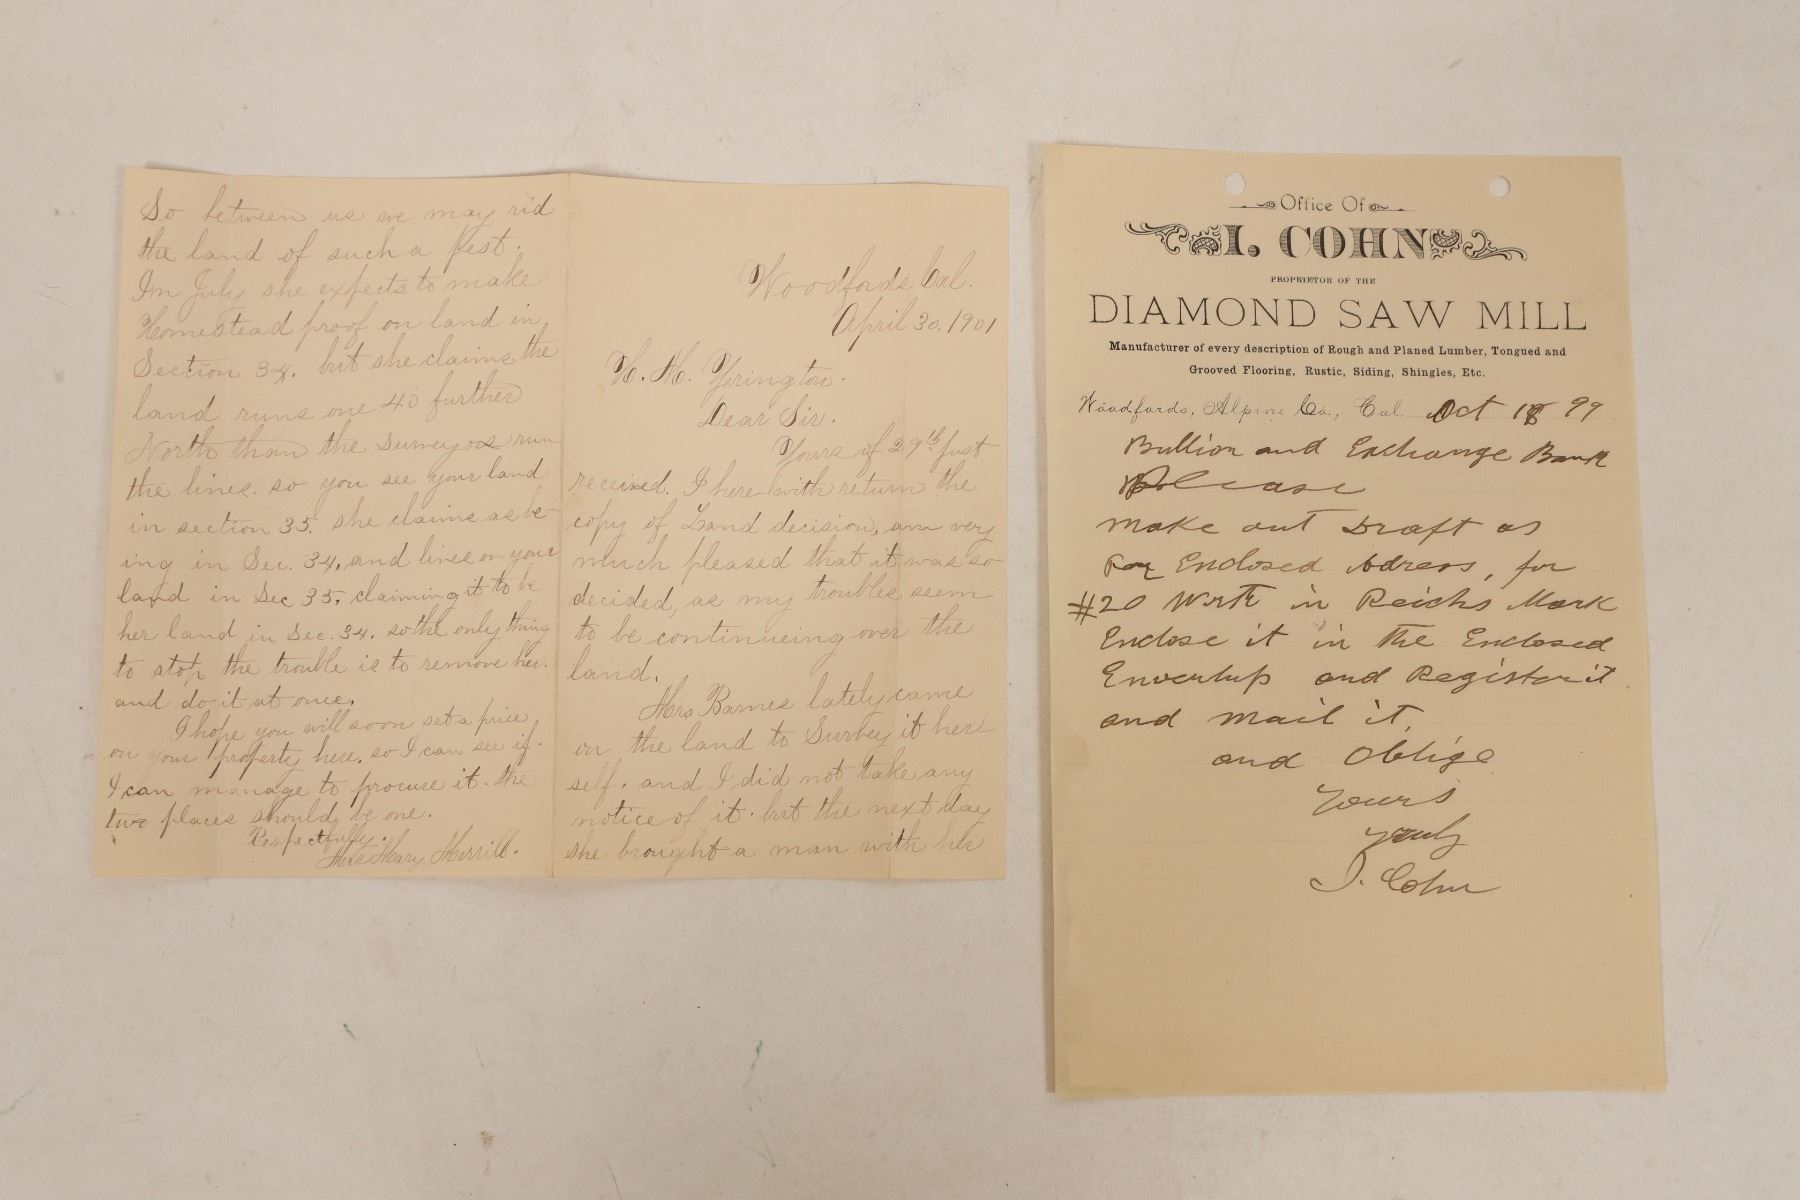 So between us we may rid
the land of such a pest.
Im July she expects to make
Homestead proof on land in
Section 34. but she claims the
land runs one 40 further
North than the surveyors run
the lines. so you see your land
in section 35. she claims as be-
ing in Sec. 34. and lives on your
land in Sec 35. claiming it to be
her land in Sec. 34. so the only thing
to stop the trouble is to remove her.
and do it at once.
I hope you will soon set a price
on your property here. so I can see if
I can manage to procure it. the
two places should be one.
Respectfully.
Mrs Mary Merrill.
Woodfords Cal.
April 30. 1901
H. M. Yerington.
Dear Sir.
Yours of 29th just
received. I here with return the
copy of Land decision, am very
much pleased that it was so
decided, as my troubles seem
to be continueing over the
land.
Mrs Barnes lately came
on the land to Survey it her
self. and I did not take any
notice of it. but the next day
she brought a man with her
Office Of
I. COHN
PROPRIETOR OF THE
DIAMOND SAW MILL
Manufacturer of every description of Rough and Planed Lumber, Tongued and
Grooved Flooring, Rustic, Siding, Shingles, Etc.
Woodfords, Alpine Co., Cal. Oct 18 99
Bullion and Exchange Bank
Please
make out Draft as
per Enclosed Adress, for
#20 Wort in Reichs Mark
Enclose it in the Enclosed
Envenlup and Register it
and mail it.
and Oblige
Yours
Truly
I. Cohn